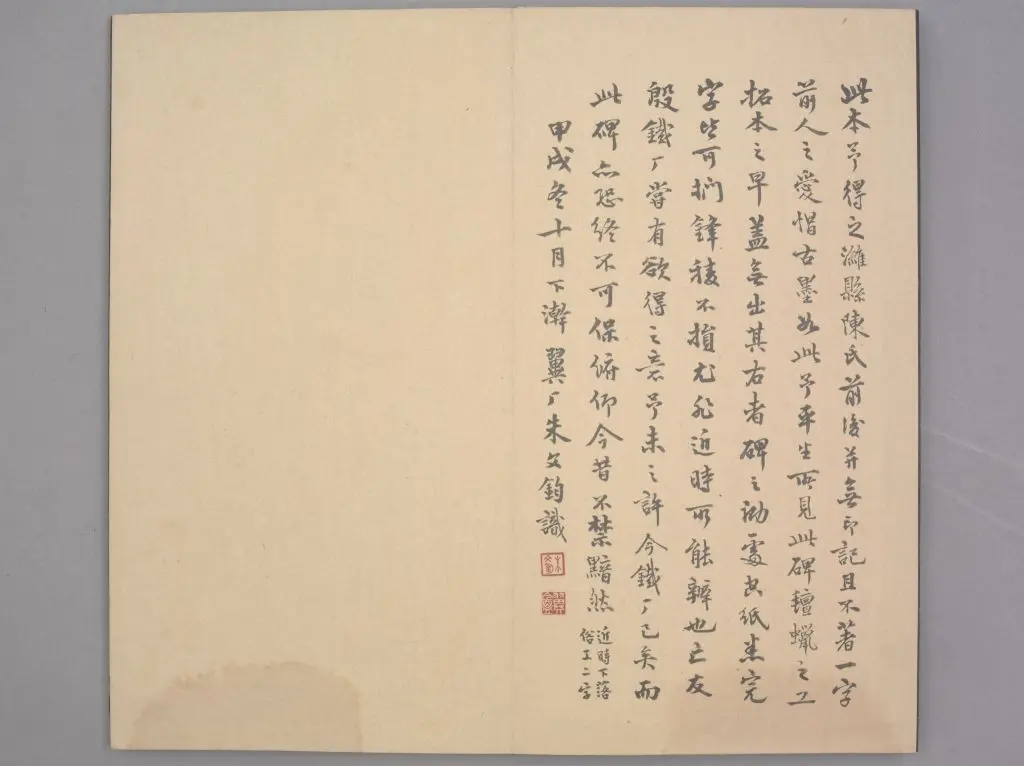 此本予得之濰縣陳氏前後并無印記且不著一字
前人之愛惜古墨如此予平生所見此碑氊蠟之工
拓本之早蓋無出其右者碑之泐處出紙素完
字皆可捫鋒稜不損尤非近時所能辦也亡友
殷鐵厂嘗有欲得之意予未之許今鐵厂已矣而
此碑亦恐終不可保俯仰今昔不禁黯然
近時下落
俗工二字
甲戌冬十月下澣翼厂朱文鈞識
朱文鈞